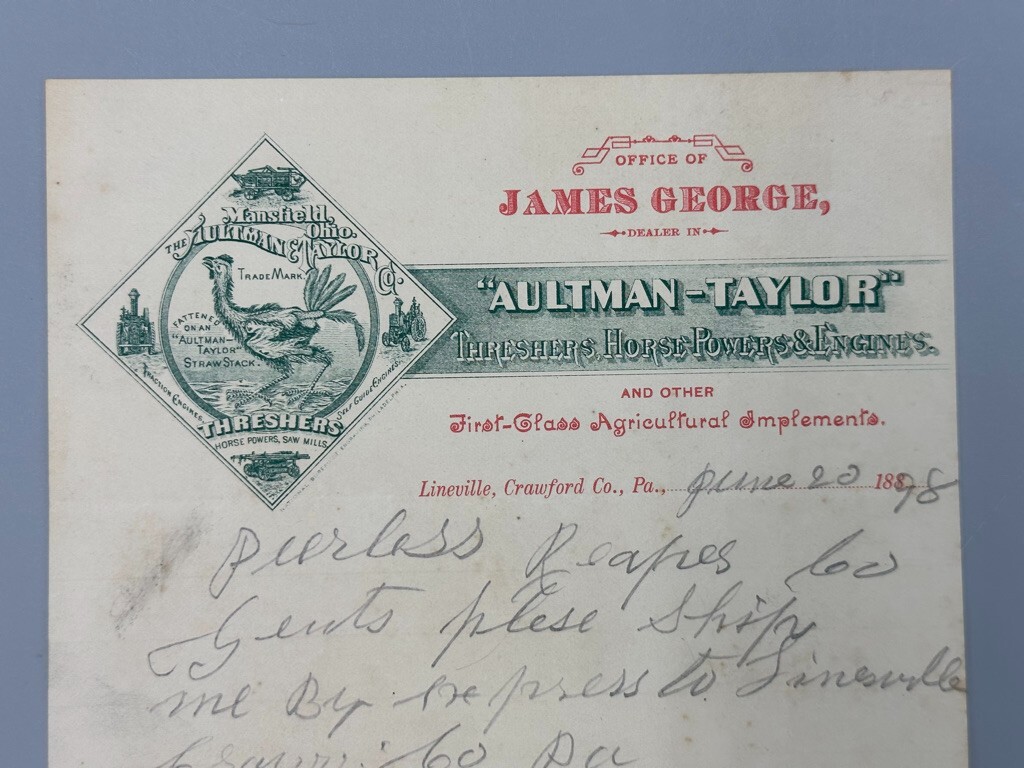 OFFICE OF
JAMES GEORGE,
DEALER IN
"AULTMAN-TAYLOR"
THRESHERS, HORSE POWERS & ENGINES.
AND OTHER
First-Class Agricultural Implements.
Mansfield,
Ohio.
THE AULTMAN & TAYLOR CO.
TRADE MARK.
FATTENED
ON AN
"AULTMAN-
TAYLOR"
STRAW STACK.
TRACTION ENGINES,
SELF GUIDE ENGINES,
THRESHERS
HORSE POWERS, SAW MILLS.
Lineville, Crawford Co., Pa., June 20 1898
Peerless Reaper Co
Gents plese Ship
me By express to Linesville
Co Pa